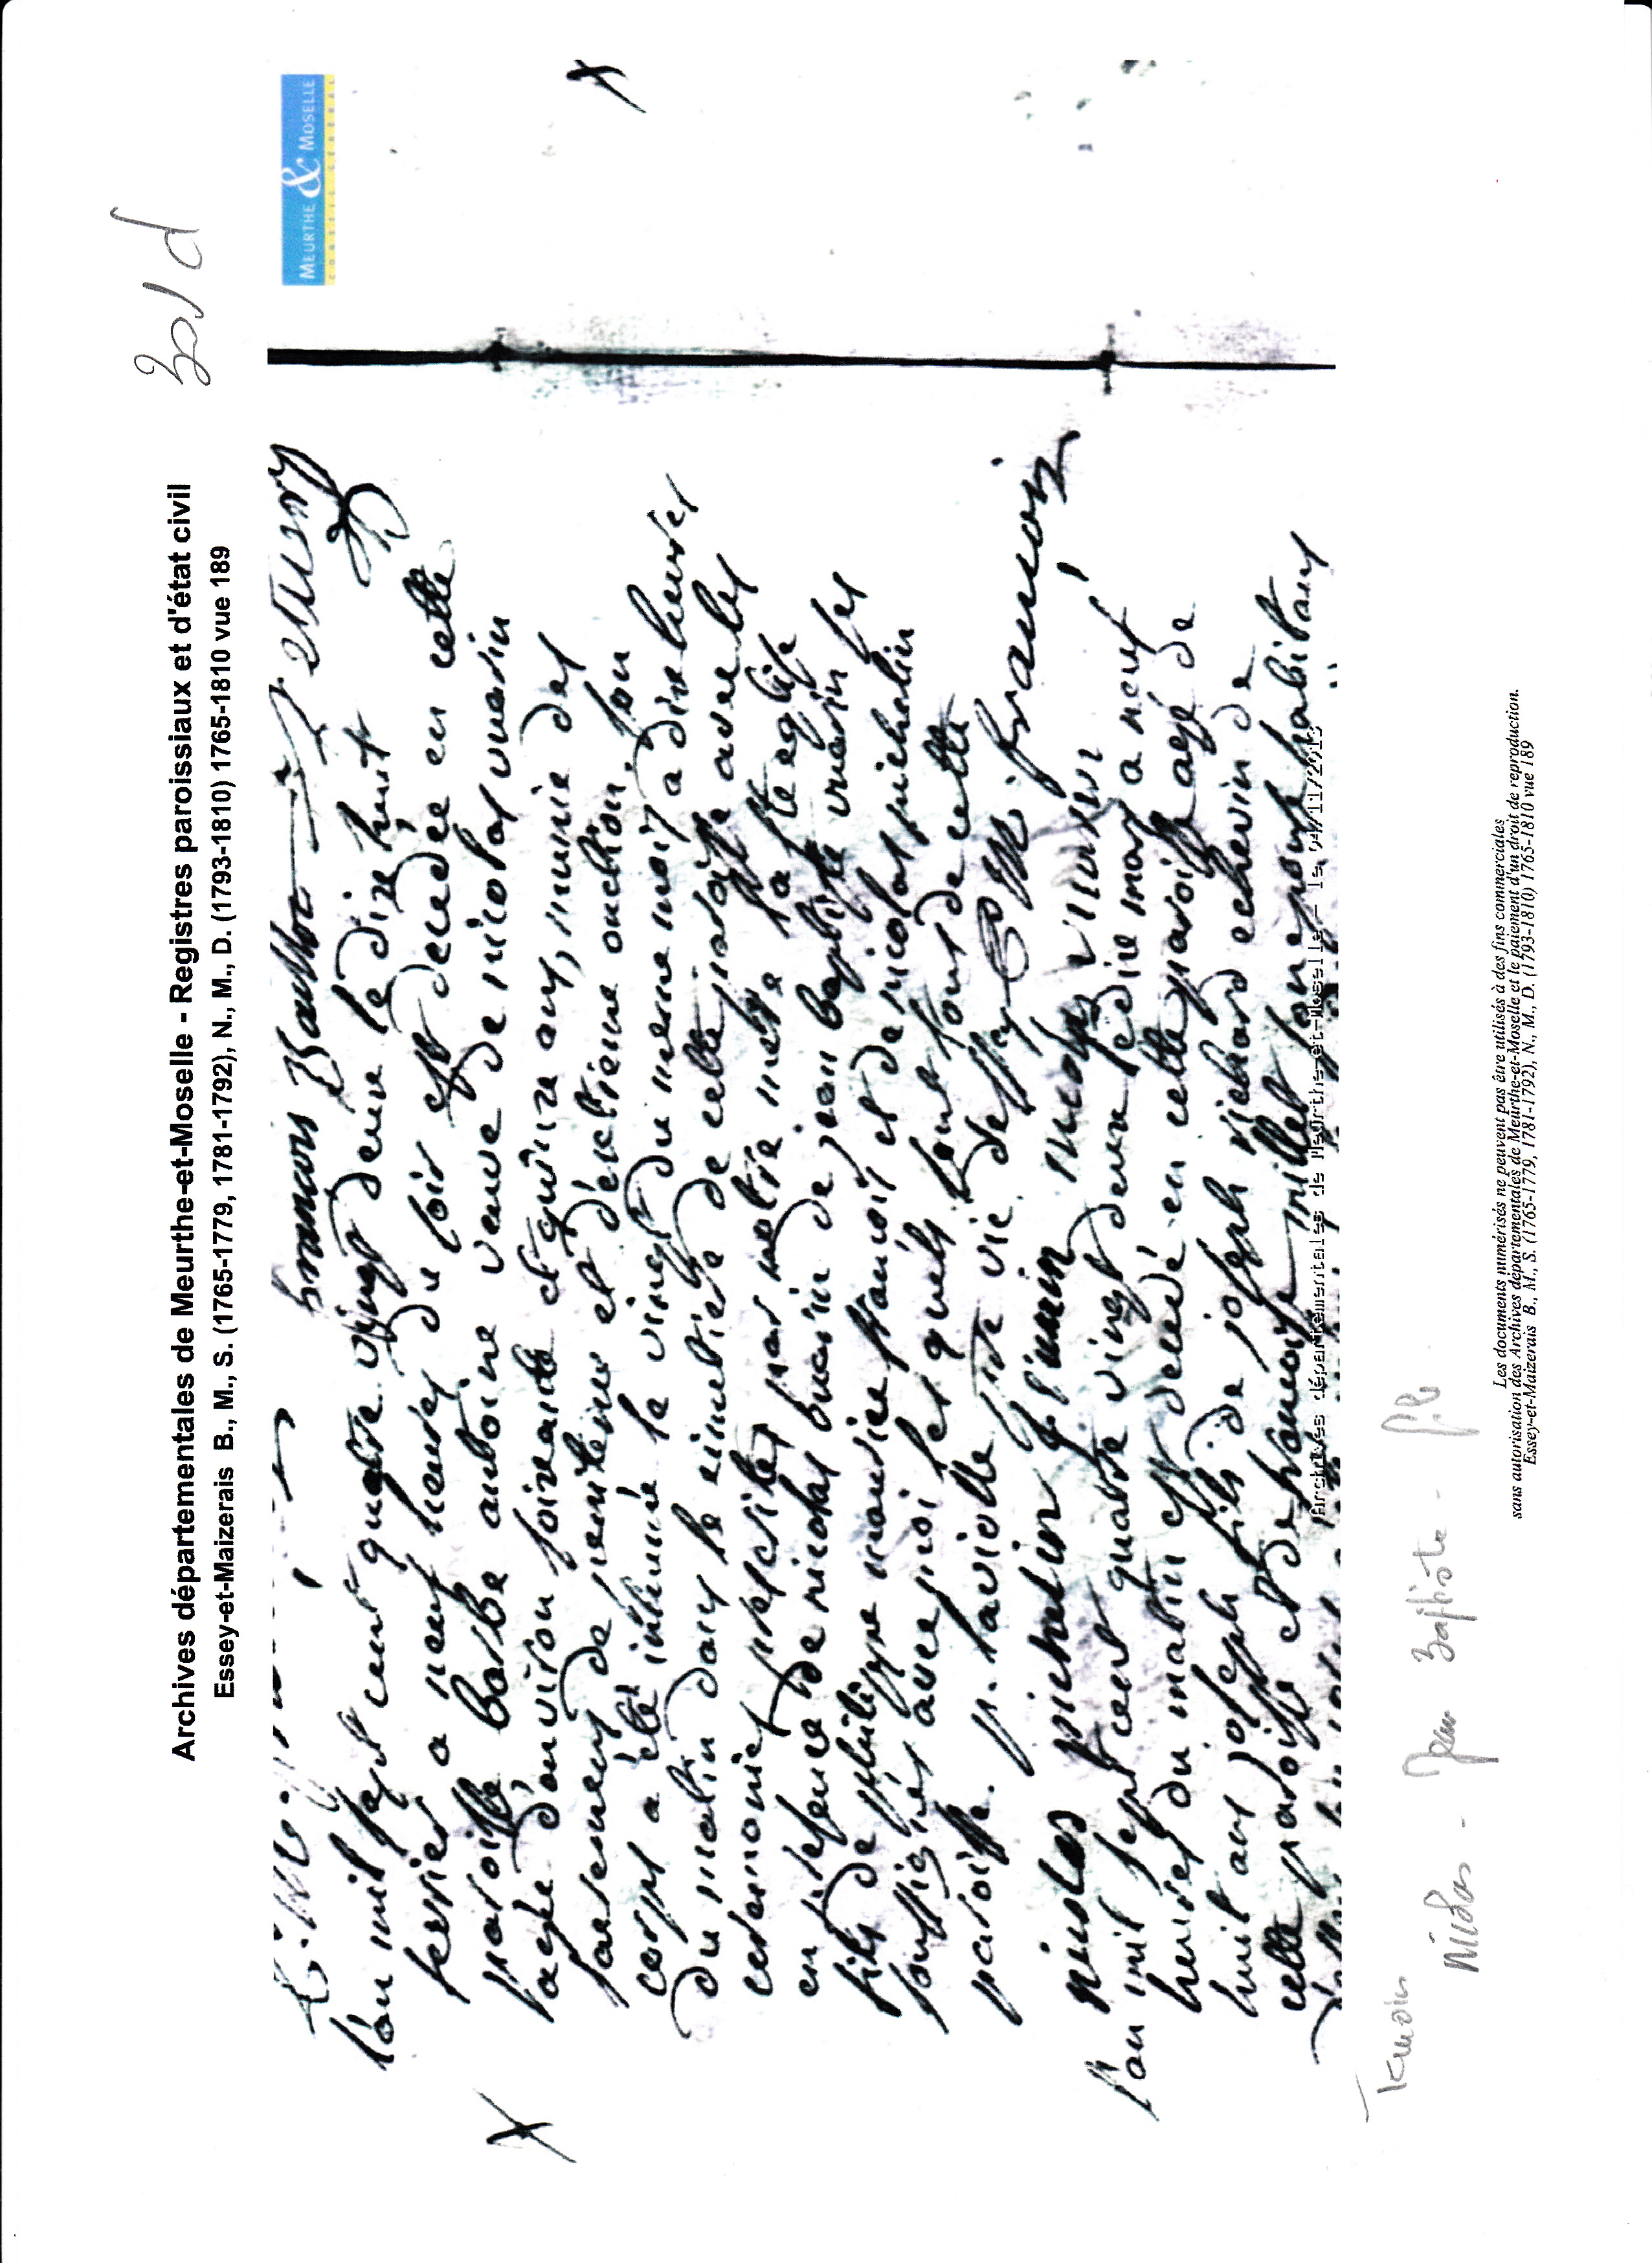 301d
Archives départementales de Meurthe-et-Moselle - Registres paroissiaux et d'état civil
Essey-et-Maizerais B., M., S. (1765-1779, 1781-1792), N., M., D. (1793-1810) 1765-1810 vue 189
MEURTHE & MOSELLE
francois
l'an mil sept cent quatre vingt deux le dixe huit
fevrier a neuf heures du soir est decedée en cette
paroisse barbe antoine veuve de nicolas vuarin
agée d'environ soixante et quinze ans, munie des
sacremens de penitence et d'extreme onction, son
corps a été inhumé le vingt du meme mois a dix heures
du matin dans le cimetiere de cette paroisse avec les
ceremonies prescrites par notre mere la ste eglise
en presence de nicolas vuarin de jean baptiste vuarin ses
fils de philippe maurice francois et de nicolas michelin
soussignés avec moi les quels sont tous de cette
paroisse. p. laviolle vic d'essey
francois
nicolas michelin
l'an mil sept cent quatre vingt deux le dix mars a neuf
heures du matin est decedé en cette paroisse agé de
huit ans joseph fils de joseph richard echevin de
cette paroisse et de francoise millet son epouse habitans
Archives départementales de Meurthe-et-Moselle - le
Temoin
Nicolas - Jean Baptiste - fils
Les documents numérisés ne peuvent pas être utilisés à des fins commerciales
sans autorisation des Archives départementales de Meurthe-et-Moselle et le paiement d'un droit de reproduction.
Essey-et-Maizerais B., M., S. (1765-1779, 1781-1792), N., M., D. (1793-1810) 1765-1810 vue 189